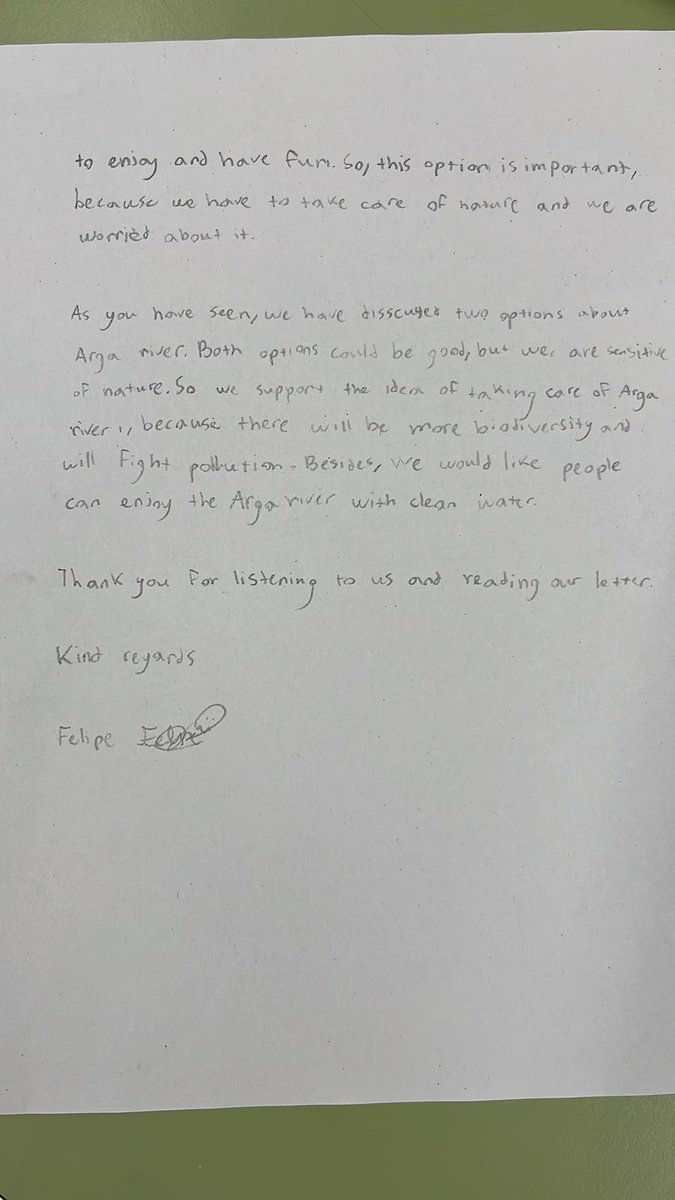 to enjoy and have fun. So, this option is important,
because we have to take care of nature and we are
worried about it.
As you have seen, we have disscuted two options about
Arga river. Both options could be good, but we, are sensitive
of nature. So we support the idea of taking care of Arga
river, because there will be more biodiversity and
will Fight pollution. Besides, we would like people
can enjoy the Arga river with clean water.
Thank you For listening to us and reading our letter.
Kind regards
Felipe